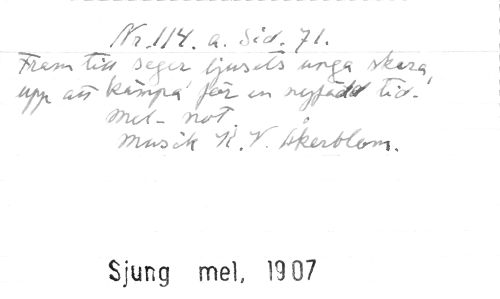 Nr. 114. a. Sid. 71.
Fram till seger ljusets unga skara,
upp att kämpa för en nyfödd tid.
Mel- not.
Musik K. V. Åkerblom.
Sjung mel, 1907